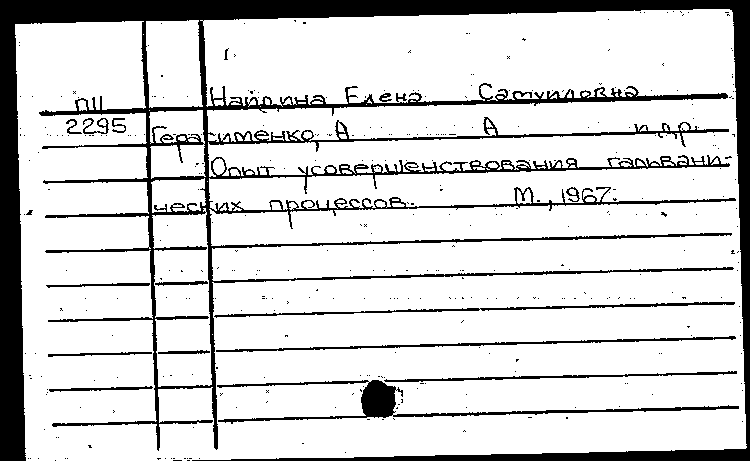 1.
П11 Найдина, Елена Самуиловна
2295 Герасименко, А А и др.
Опыт усовершенствования гальвани-
ческих процессов. М., 1967.